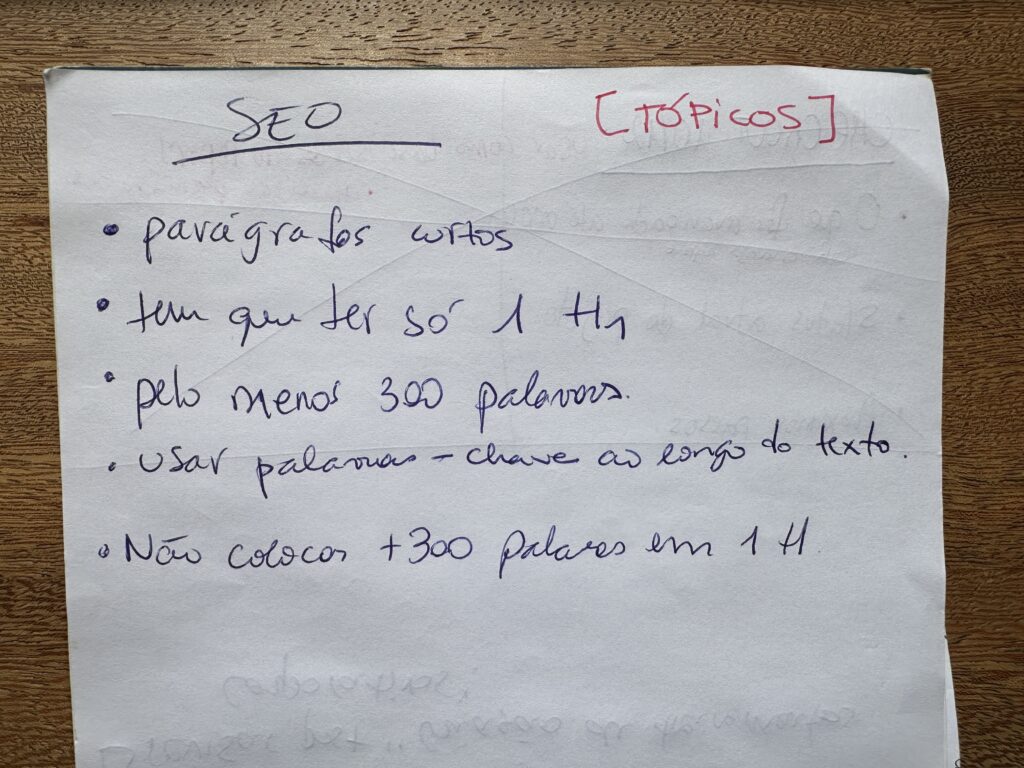 SEO [TÓPICOS]
• parágrafos curtos
• tem que ter só 1 H1
• pelo menos 300 palavras.
• Usar palavras-chave ao longo do texto.
• Não colocar +300 palavras em 1 H.